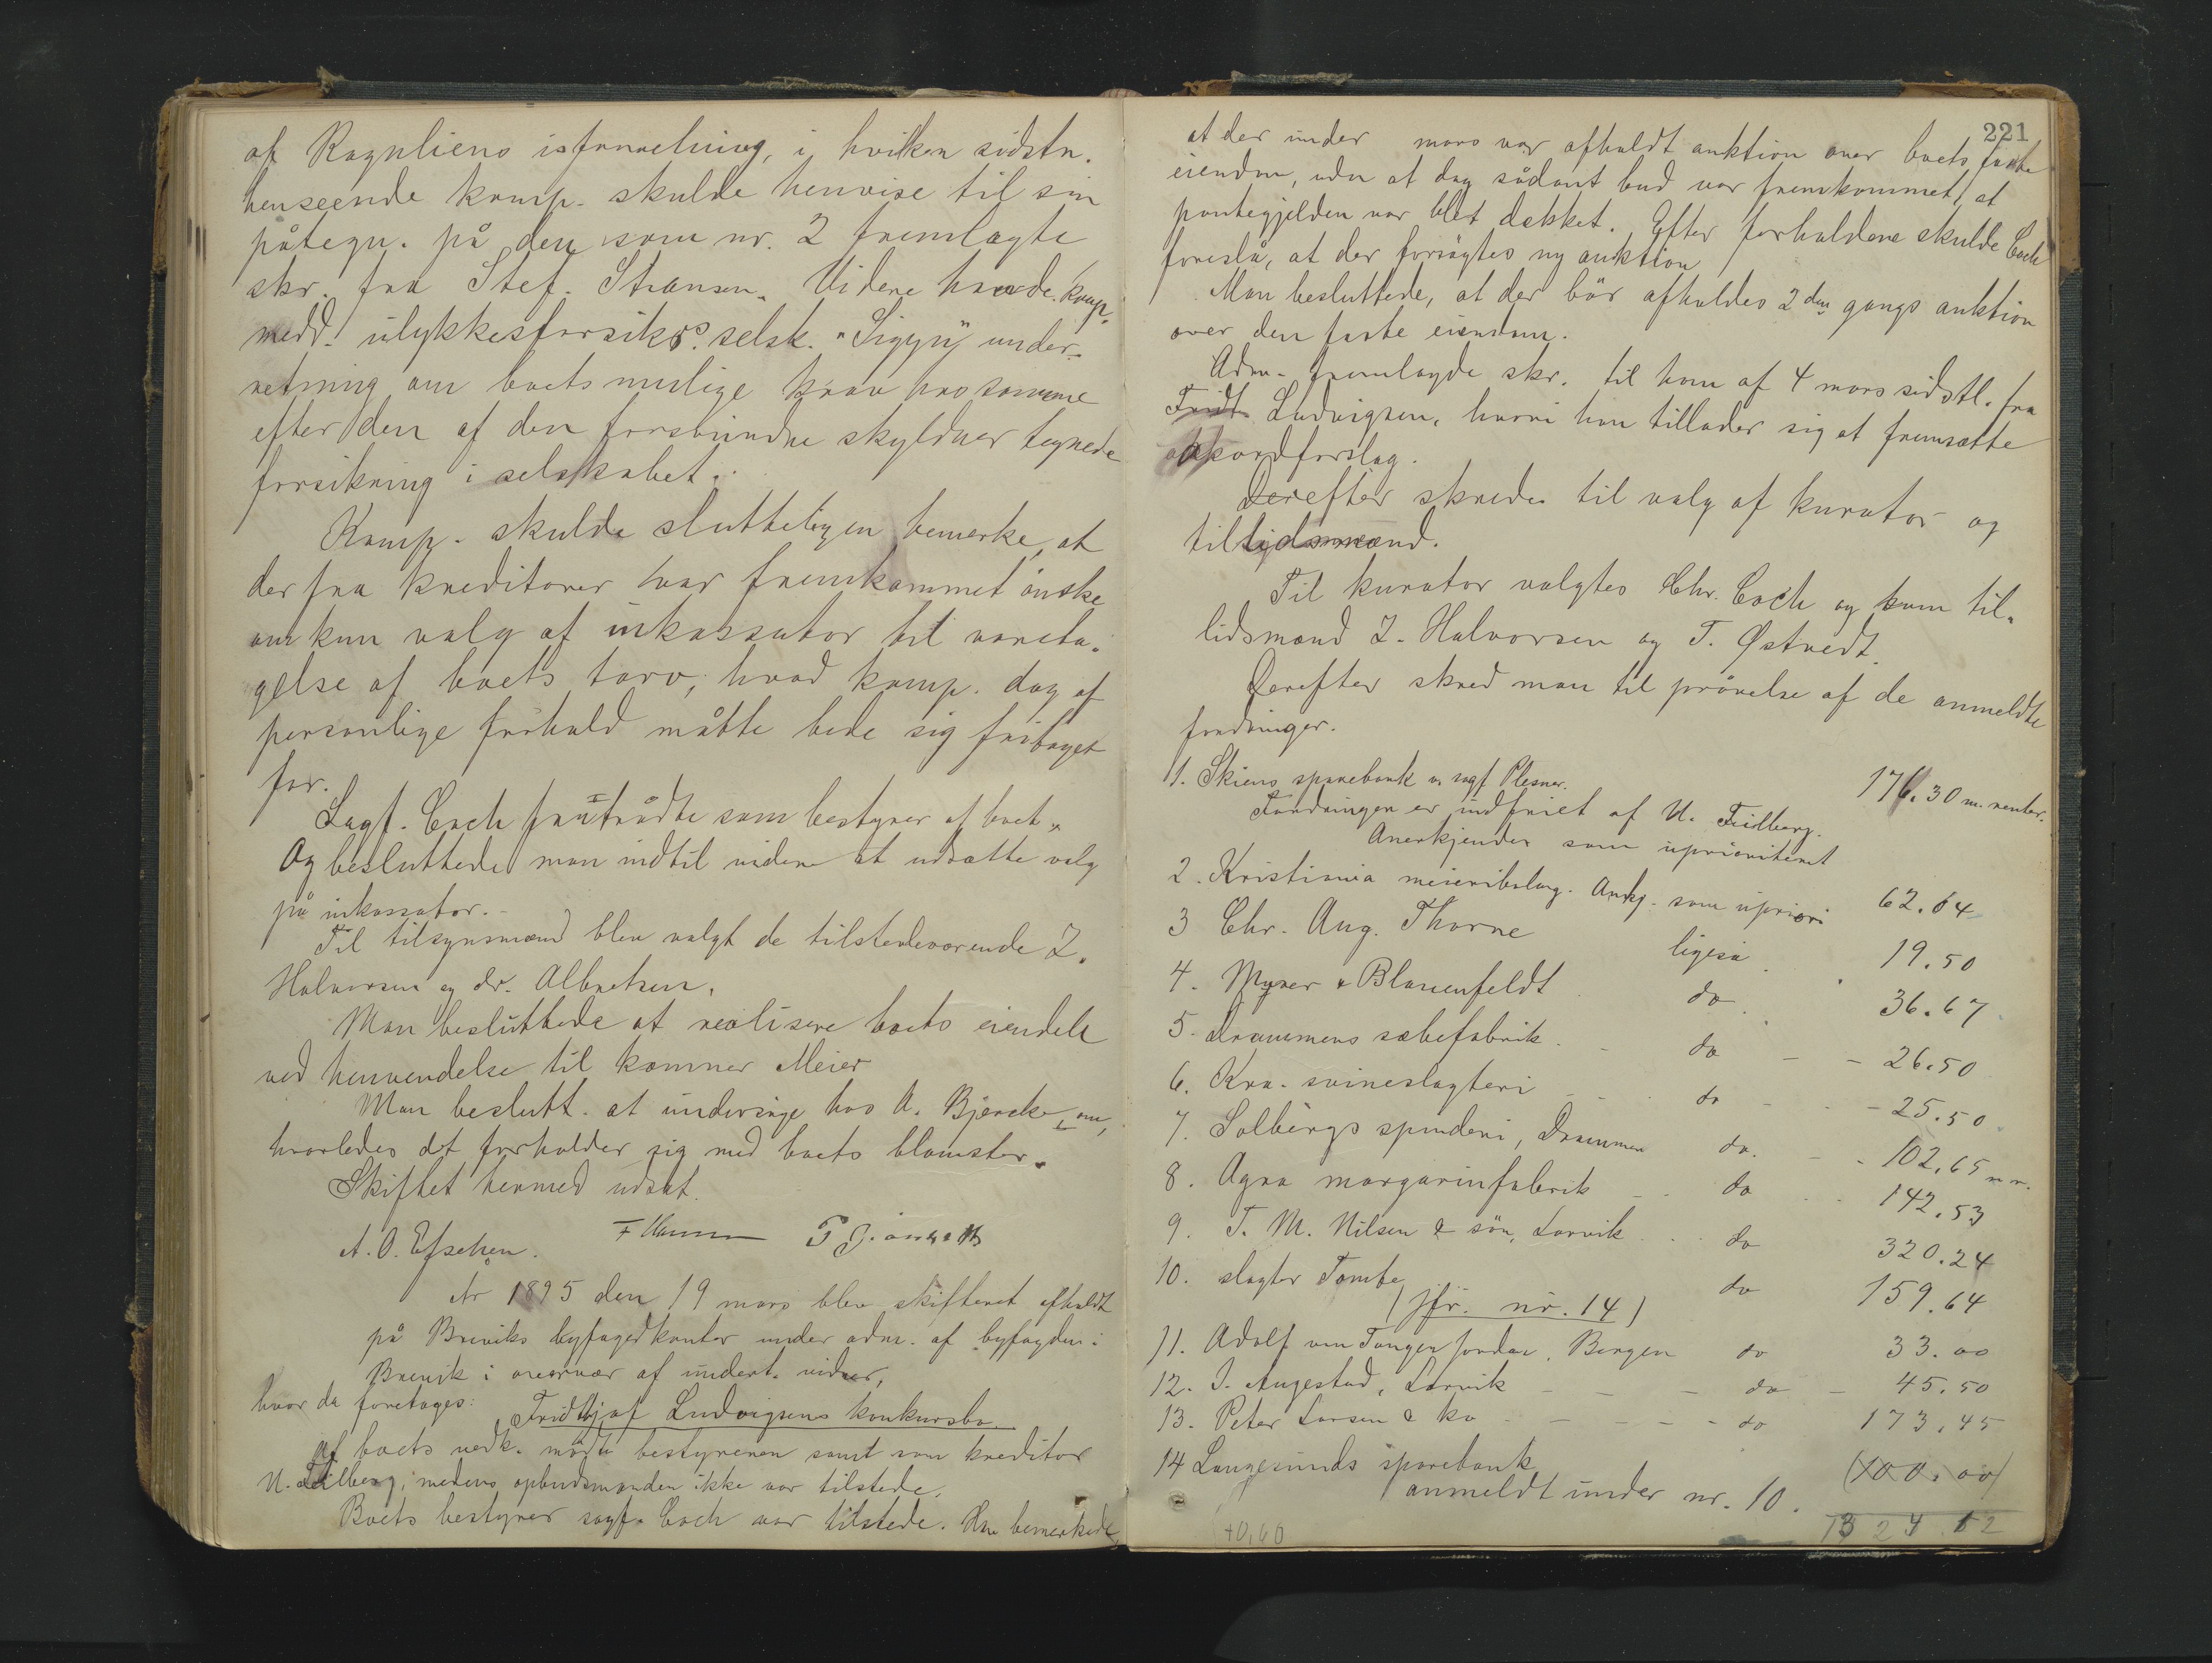 af Ragnliens isforretning, i hvilken sidstn.
henseende komp. skulde henvise til sin
påtegn. på den som nr. 2 fremlagte
skr. fra Stef. Stransen. Videre havde komp.
medd. ulykkesforsikrs. selsk. "Sigyn" under-
retning om boets mulige krav hos samme
efter den af den forsvundne skyldner tegnede
forsikring i selskabet.
Komp. skulde slutteligen bemerke, at
der fra kreditorer var fremkommet ønske
om kun valg af inkassator til vareta-
gelse af boets tarv, hvad komp. dog af
personlige forhold måtte bede sig fritaget
for.
Sagf. Coch fratrådte som bestyrer af boet.
Og besluttede man indtil videre at udsætte valg
på inkassator.
Til tilsynsmænd blev valgt de tilstedeværende I.
Halvorsen og dr. Albretsen.
Man besluttede at realisere boets eiendele
ved henvendelse til kæmner Meier
Man beslutt. at undersøge hos A. Bjercke, om,
hvorledes det forholder sig med boets blomster.
Skiftet hermed udsat.
A. O. Efsehen. F Hansen
År 1895 den 19 mars blev skifteret afholdt
på Breviks byfogedkontor under adm. af byfogden i
Brevik i overvær af undert. vidner,
hvor da foretoges:
Fridthjof Ludvigsens konkursbo.
Af boets vedk. mødte bestyreren samt som kreditor
N. Feilberg, medens opbudsmanden ikke var tilstede.
Boets bestyrer sagf. Coch var tilstede. Han bemerkede,
221
at der under mars var afholdt auktion over boets faste
eiendom, uden at dog sådant bud var fremkommet, at
pantegjelden var blet dækket. Efter forholdene skulde Coch
foreslå, at der forsøgtes ny auktion
Man besluttede, at der bør afholdes 2den gangs auktion
over den faste eiendom.
Adm. fremlagde skr. til ham af 4 mars sidstl. fra
Fridt. Ludvigsen, hvori han tillader sig at fremsætte
akkordforslag.
Derefter skredes til valg af kurator og
tillidsmænd.
Til kurator valgtes Chr. Coch og som til-
lidsmænd I. Halvorsen og T. Østvedt.
Derefter skred man til prøvelse af de anmeldte
fordringer.
1. Skiens sparebank v. sagf Plesner. 176.30 m. renter.
Fordringen er indfriet af N. Feilberg.
Anerkjendes som uprioriteret
2. Kristiania meieribolag. Ankj. som upriori 62.64
3 Chr. Aug. Thorne ligeså 19.50
4. Myrer & Blauenfeldt do 36.67
5. Drammens sæbefabrik. - do - - 26.50
6. Kra. svineslagteri - - do - - - 25.50
7. Solbergs spinderi, Drammen do. - - 102.65 m r.
8. Agra margarinfabrik - - do 142.53
9. T. M. Nilsen & søn, Larvik do 320.24
10. slagter Tombe do 159.64
(jfr. nr. 14)
11. Adolf von Tangen Jordan, Bergen do 33.00
12. J. Augestad, Larvik - - - do - 45.50
13. Peter Larsen & ko - - - - do 173.45
14 Langesunds sparebank (100.00)
anmeldt under nr. 10.
1324.12
40,60